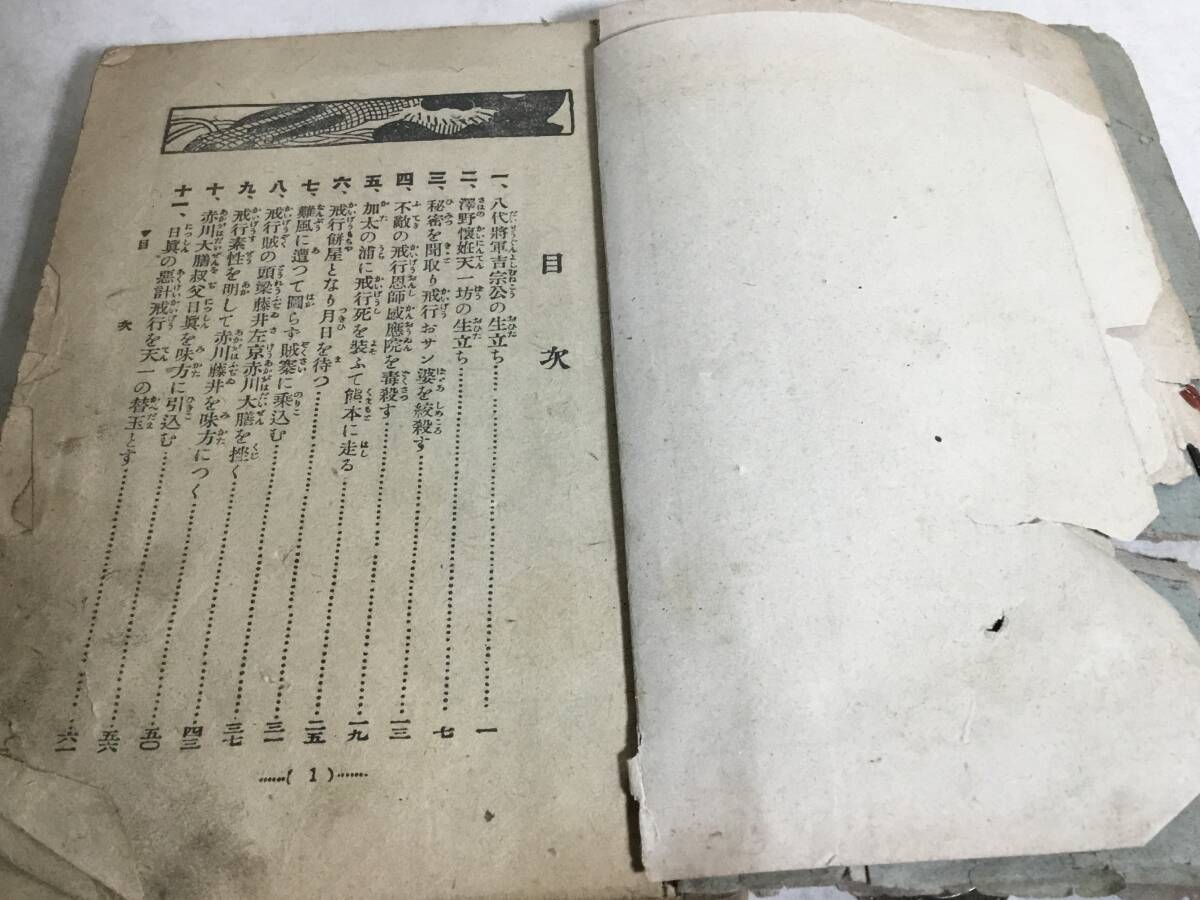 目次
一、八代將軍吉宗公の生立ち………一
二、澤野懷姙天一坊の生立ち………七
三、秘密を聞取り戒行おサン婆を絞殺す………一三
四、不敵の戒行恩師感應院を毒殺す………一九
五、加太の浦に戒行死を裝ふて熊本に走る………二五
六、戒行餅屋となり月日を待つ………三一
七、難風に遭つて圖らず賊寨に乘込む………三七
八、戒行賊の頭梁藤井左京赤川大膳を挫く………四三
九、戒行素性を明して赤川藤井を味方につく………五〇
十、赤川大膳叔父日眞を味方に引込む………五六
十一、日眞の惡計戒行を天一の替玉とす………六一
▼目次
……( 1 )……